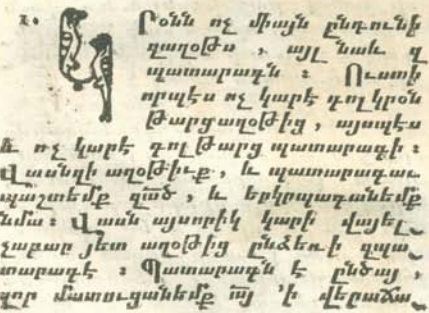 1. Կրօնն ոչ միայն ընդունի
զաղօթս , այլ նաև զ
պատարագն ։ Ուստի
որպէս ոչ կարէ գոլ կրօն
թարց աղօթից , այսպէս
և ոչ կարէ գոլ թարց պատարագի ։
Վասնզի աղօթիւք , և պատարագաւ
պաշտեմք զած , և երկրպագանեմք
նմա ։ Վասն այսորիկ կարի վայել_
չաբար յետ աղօթից ընձեռի զպա_
տարագէ ։ Պատարագն է ընծայ ,
զոր մատուցանեմք այ ՚ի վերաճա_